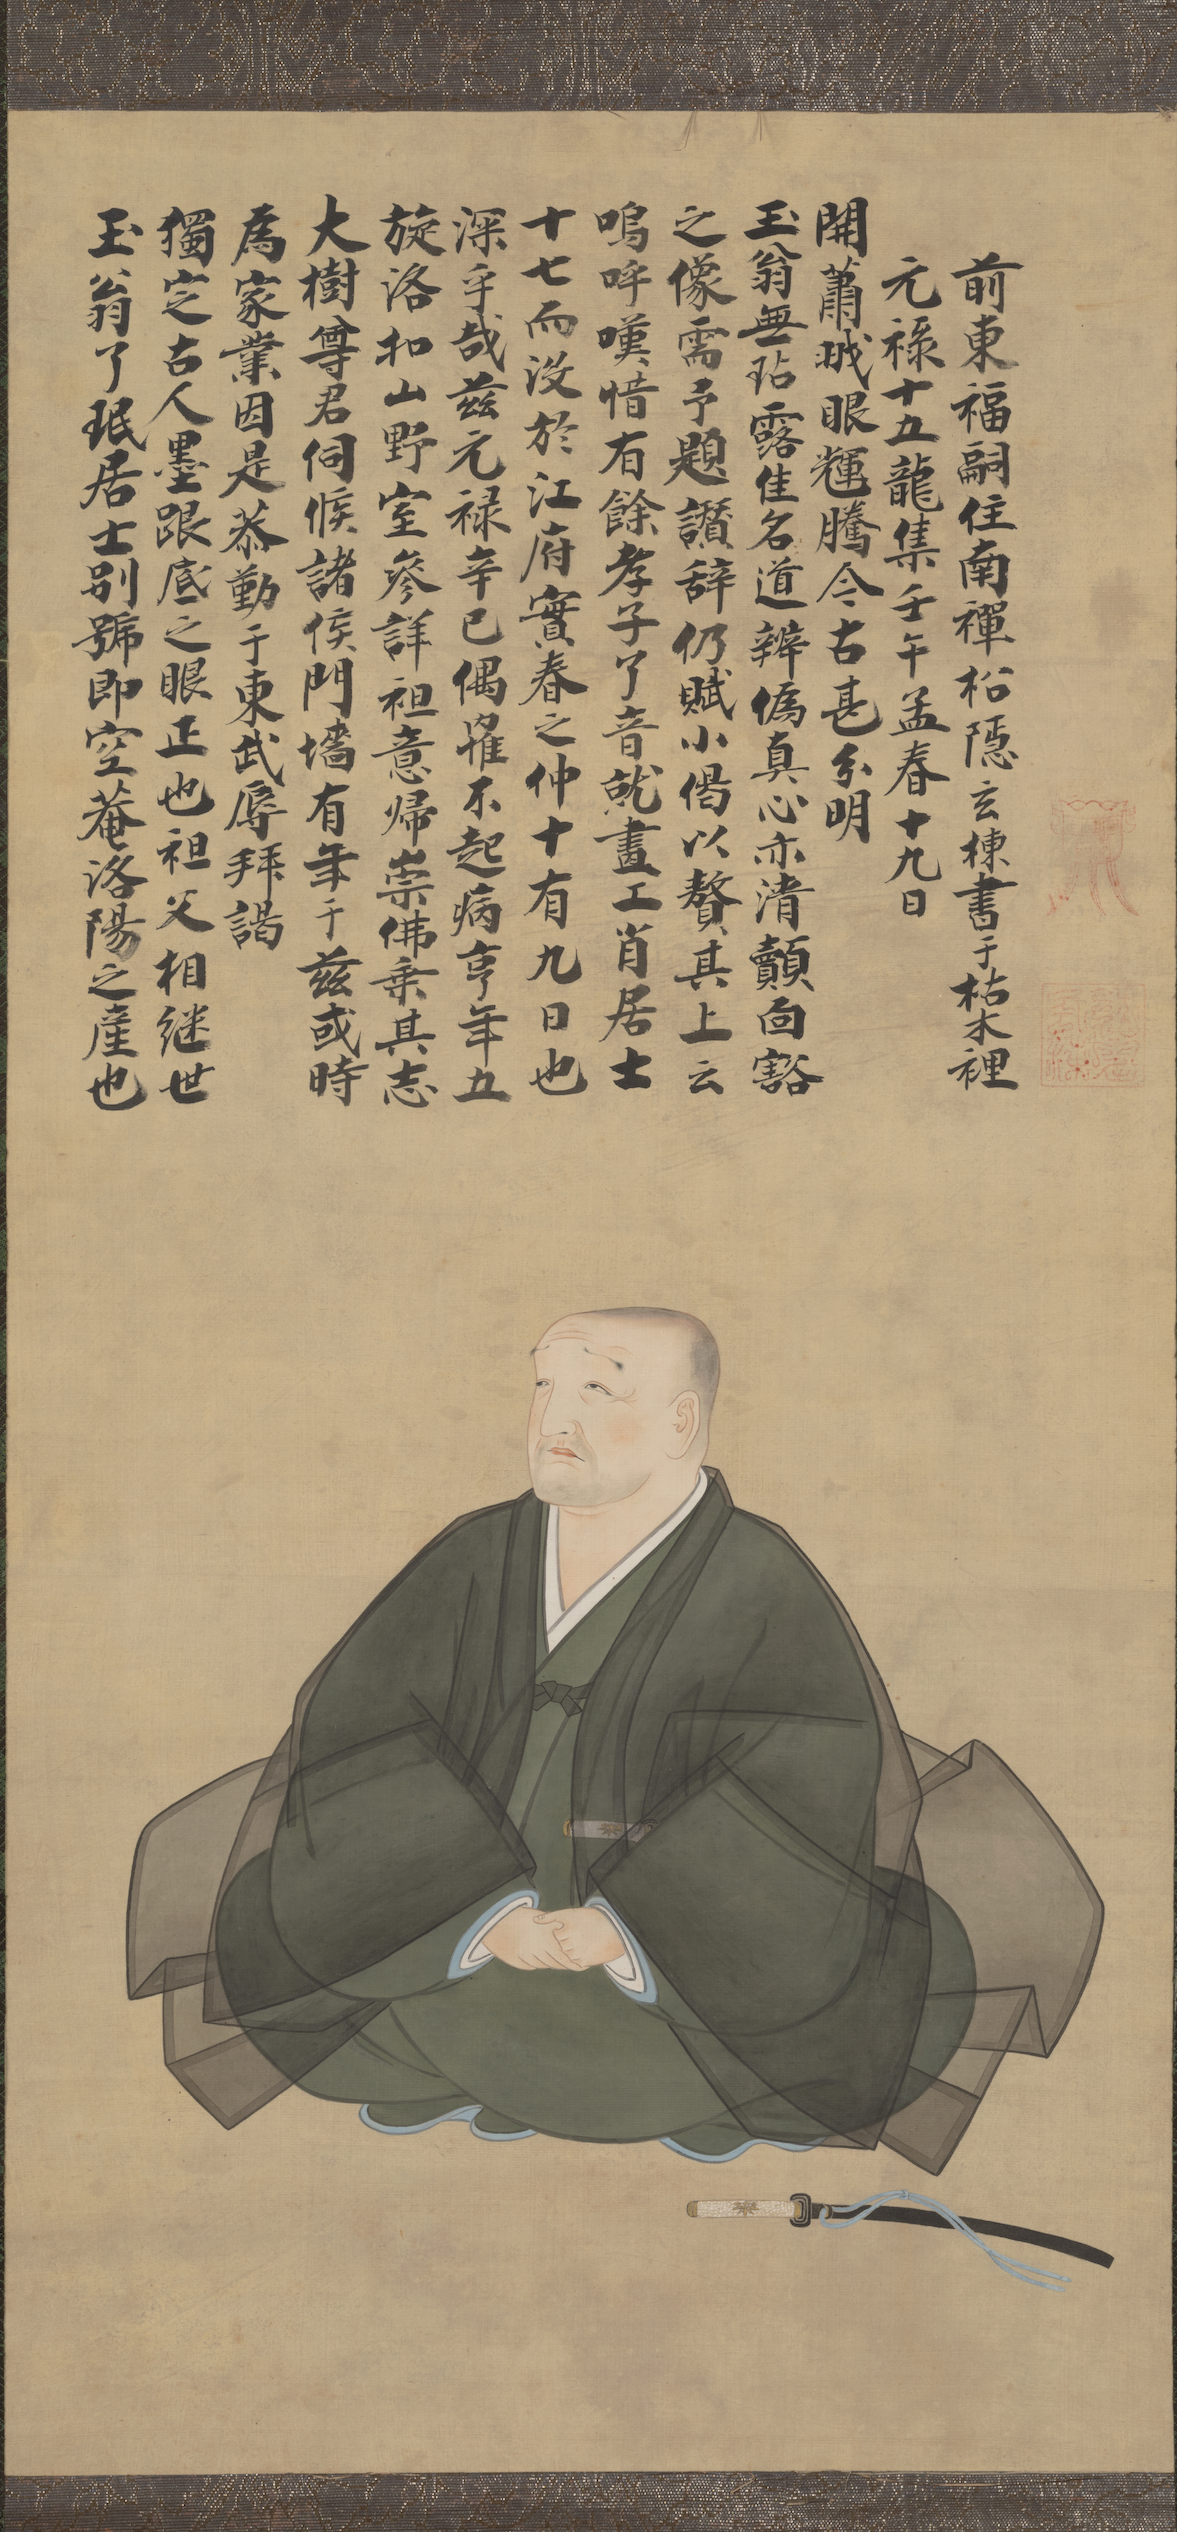 玉翁了珉居士别號即空菴洛陽之産也
獨定古人墨跟底之眼正也祖父相継世
為家業因是恭勤于東武辱拜謁
大樹尊君伺候諸侯門墻有年于茲或時
旋洛扣山野室參詳祖意歸崇佛乗其志
深乎哉茲元禄辛已偶罹不起病亨年五
十七而没於江府實春之仲十有九日也
嗚呼嘆惜有餘孝子了音就畫工肖居士
之像需予題讃辞仍賦小偈以贅其上云
玉翁無玷露佳名道辨偽真心亦清顛向豁
開蕭眼輝騰今古甚分明
元禄十五龍集壬午孟春十九日
前東福嗣住南禪松隠玄棟書于枯木裡